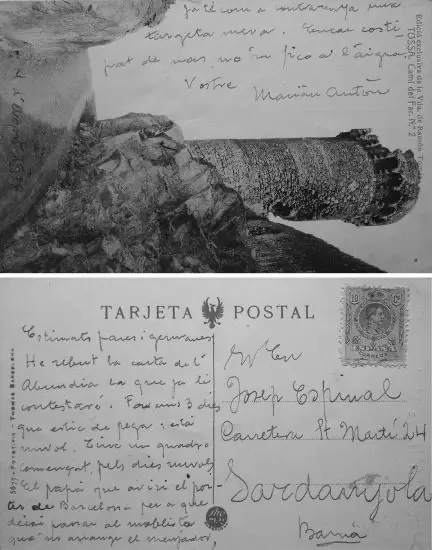 ja té com a contrasenya una
targeta meva. Encar costi
pat de nas no'm fico a l'aigua.
Vostre
Marian Antón
Edició exclusiva de la Vda. de Ramón
TOSSA. Camí del Far. N.º 2
TARJETA POSTAL
Estimats pares i germanes
He rebut la carta de l'
Abundia la que ja li
contestaré. Fa uns 3 dies
que estic de pega: està
nuvol. Tinc un quadro
començat pels dies nuvols
El papà que avisi el por-
ter de Barcelona per a que
deixi passar al moblista
que'ns arrange el menjador,
10 Cs
CORREOS
Josep Espinal
Carretera St Martí 24
Sardanyola
Barna